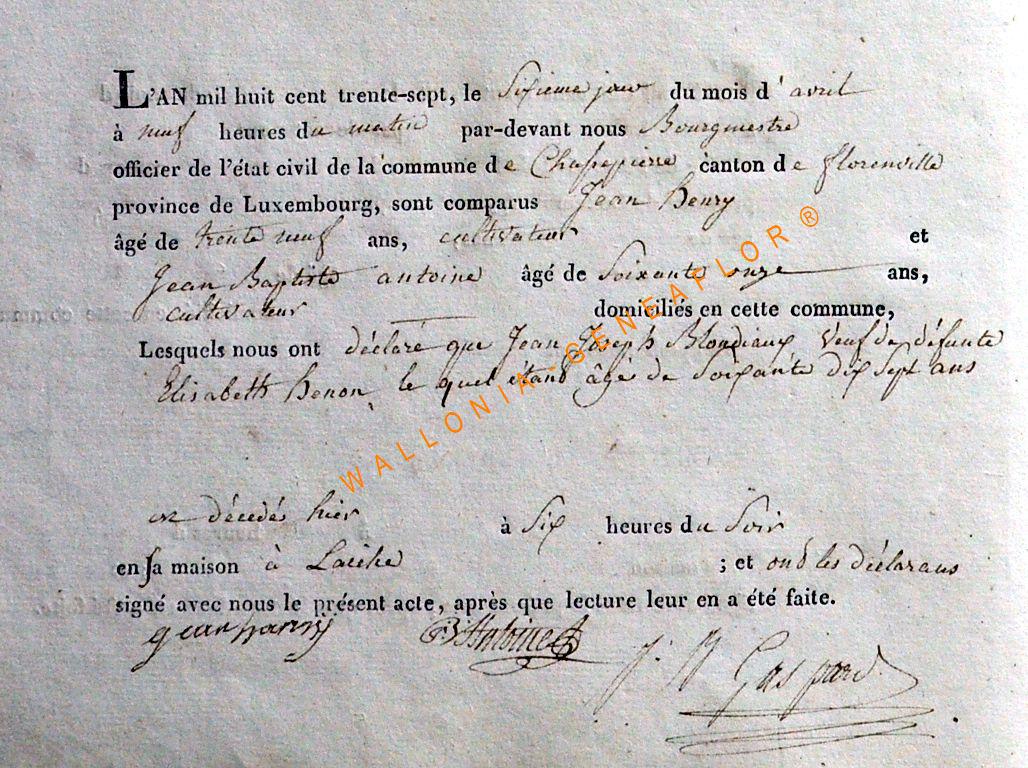 L'AN mil huit cent trente-sept, le Sixieme jour du mois d'avril
à neuf heures du matin par-devant nous Bourgmestre
officier de l'état civil de la commune de Chassepierre canton de florenville
province de Luxembourg, sont comparus Jean henry
âgé de trente neuf ans, cultivateur et
Jean Baptiste antoine âgé de Soixante onze ans,
cultivateur domiciliés en cette commune,
Lesquels nous ont déclaré que Jean Joseph Blondiaux Veuf de défunte
Elisabeth henon le quel étand âgé de Soixante dix Sept ans
WALLONIA-GENEAFLOR®
décedé hier à Six heures du Soir
en sa maison à Laiche ; et ond les déclarans
signé avec nous le présent acte, après que lecture leur en a été faite.
JBAntoine J. N Gaspard